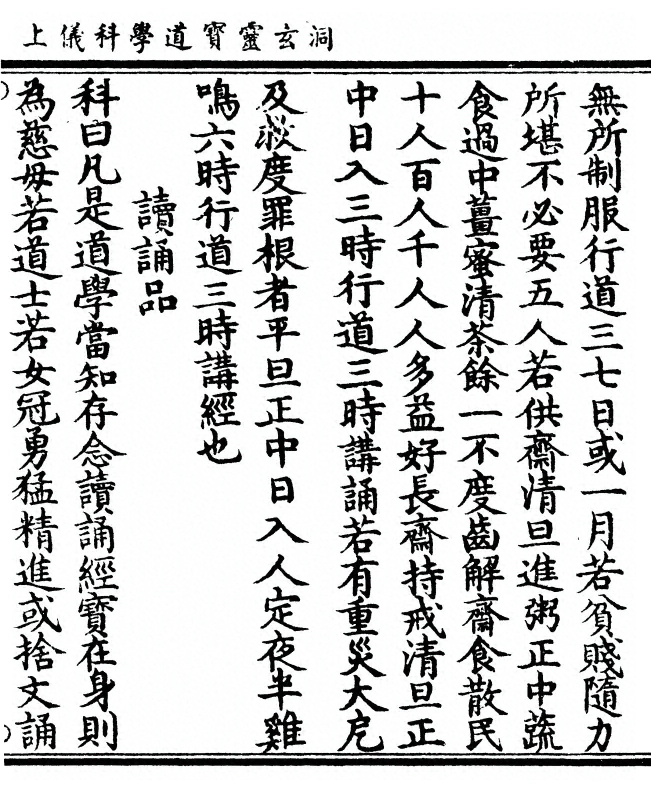 洞玄靈寶道學科儀上
無所制服行道三七日或一月若貧賤隨力
所堪不必要五人若供齋清旦進粥正中蔬
食過中薑蜜清茶餘一不度齒解齋食散民
十人百人千人人多益好長齋持戒清旦正
中日入三時行道三時講誦若有重災大厄
及救度罪根者平旦正中日入人定夜半雞
鳴六時行道三時講經也
讀誦品
科曰凡是道學當知存念讀誦經寶在身則
為慈母若道士若女冠勇猛精進或捨文誦